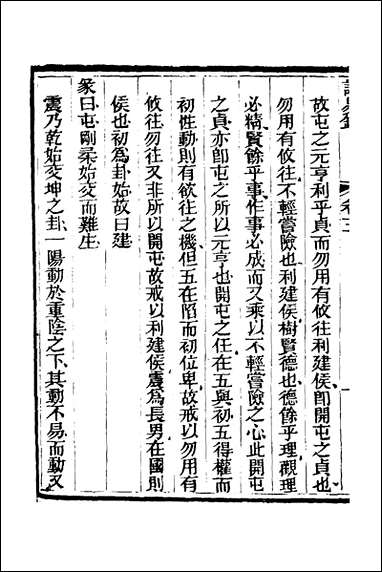 故屯之元亨利乎貞而勿用有攸往利建侯卽開屯之貞也
勿用有攸往不輕嘗險也利建侯樹賢德也德餘乎理觀理
必精賢餘乎事作事必成而又乘以不輕嘗險之心此開屯
之貞亦卽屯之所以元亨也開屯之任在五與初五得權而
初性動則有欲往之機但五在陷而初位卑故戒以勿用有
攸往勿往又非所以開屯故戒以利建侯震爲長男在國則
侯也初爲卦始故曰建
彖曰屯剛柔始交而難生
震乃乾始交坤之卦一陽動於重陰之下其動不易而動又